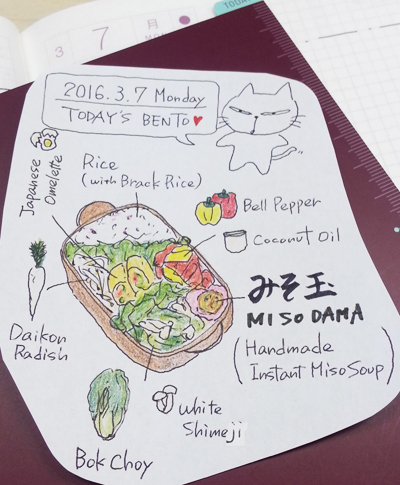 TODAY
3
7
月
2016.3.7 Monday
TODAY'S BENTO
Japanese
Omelette
Rice
(with Brack Rice)
Bell Pepper
Coconut Oil
みそ玉
MISO DAMA
(Handmade
Instant Miso Soup)
Daikon
Radish
White
Shimeji
Bok Choy